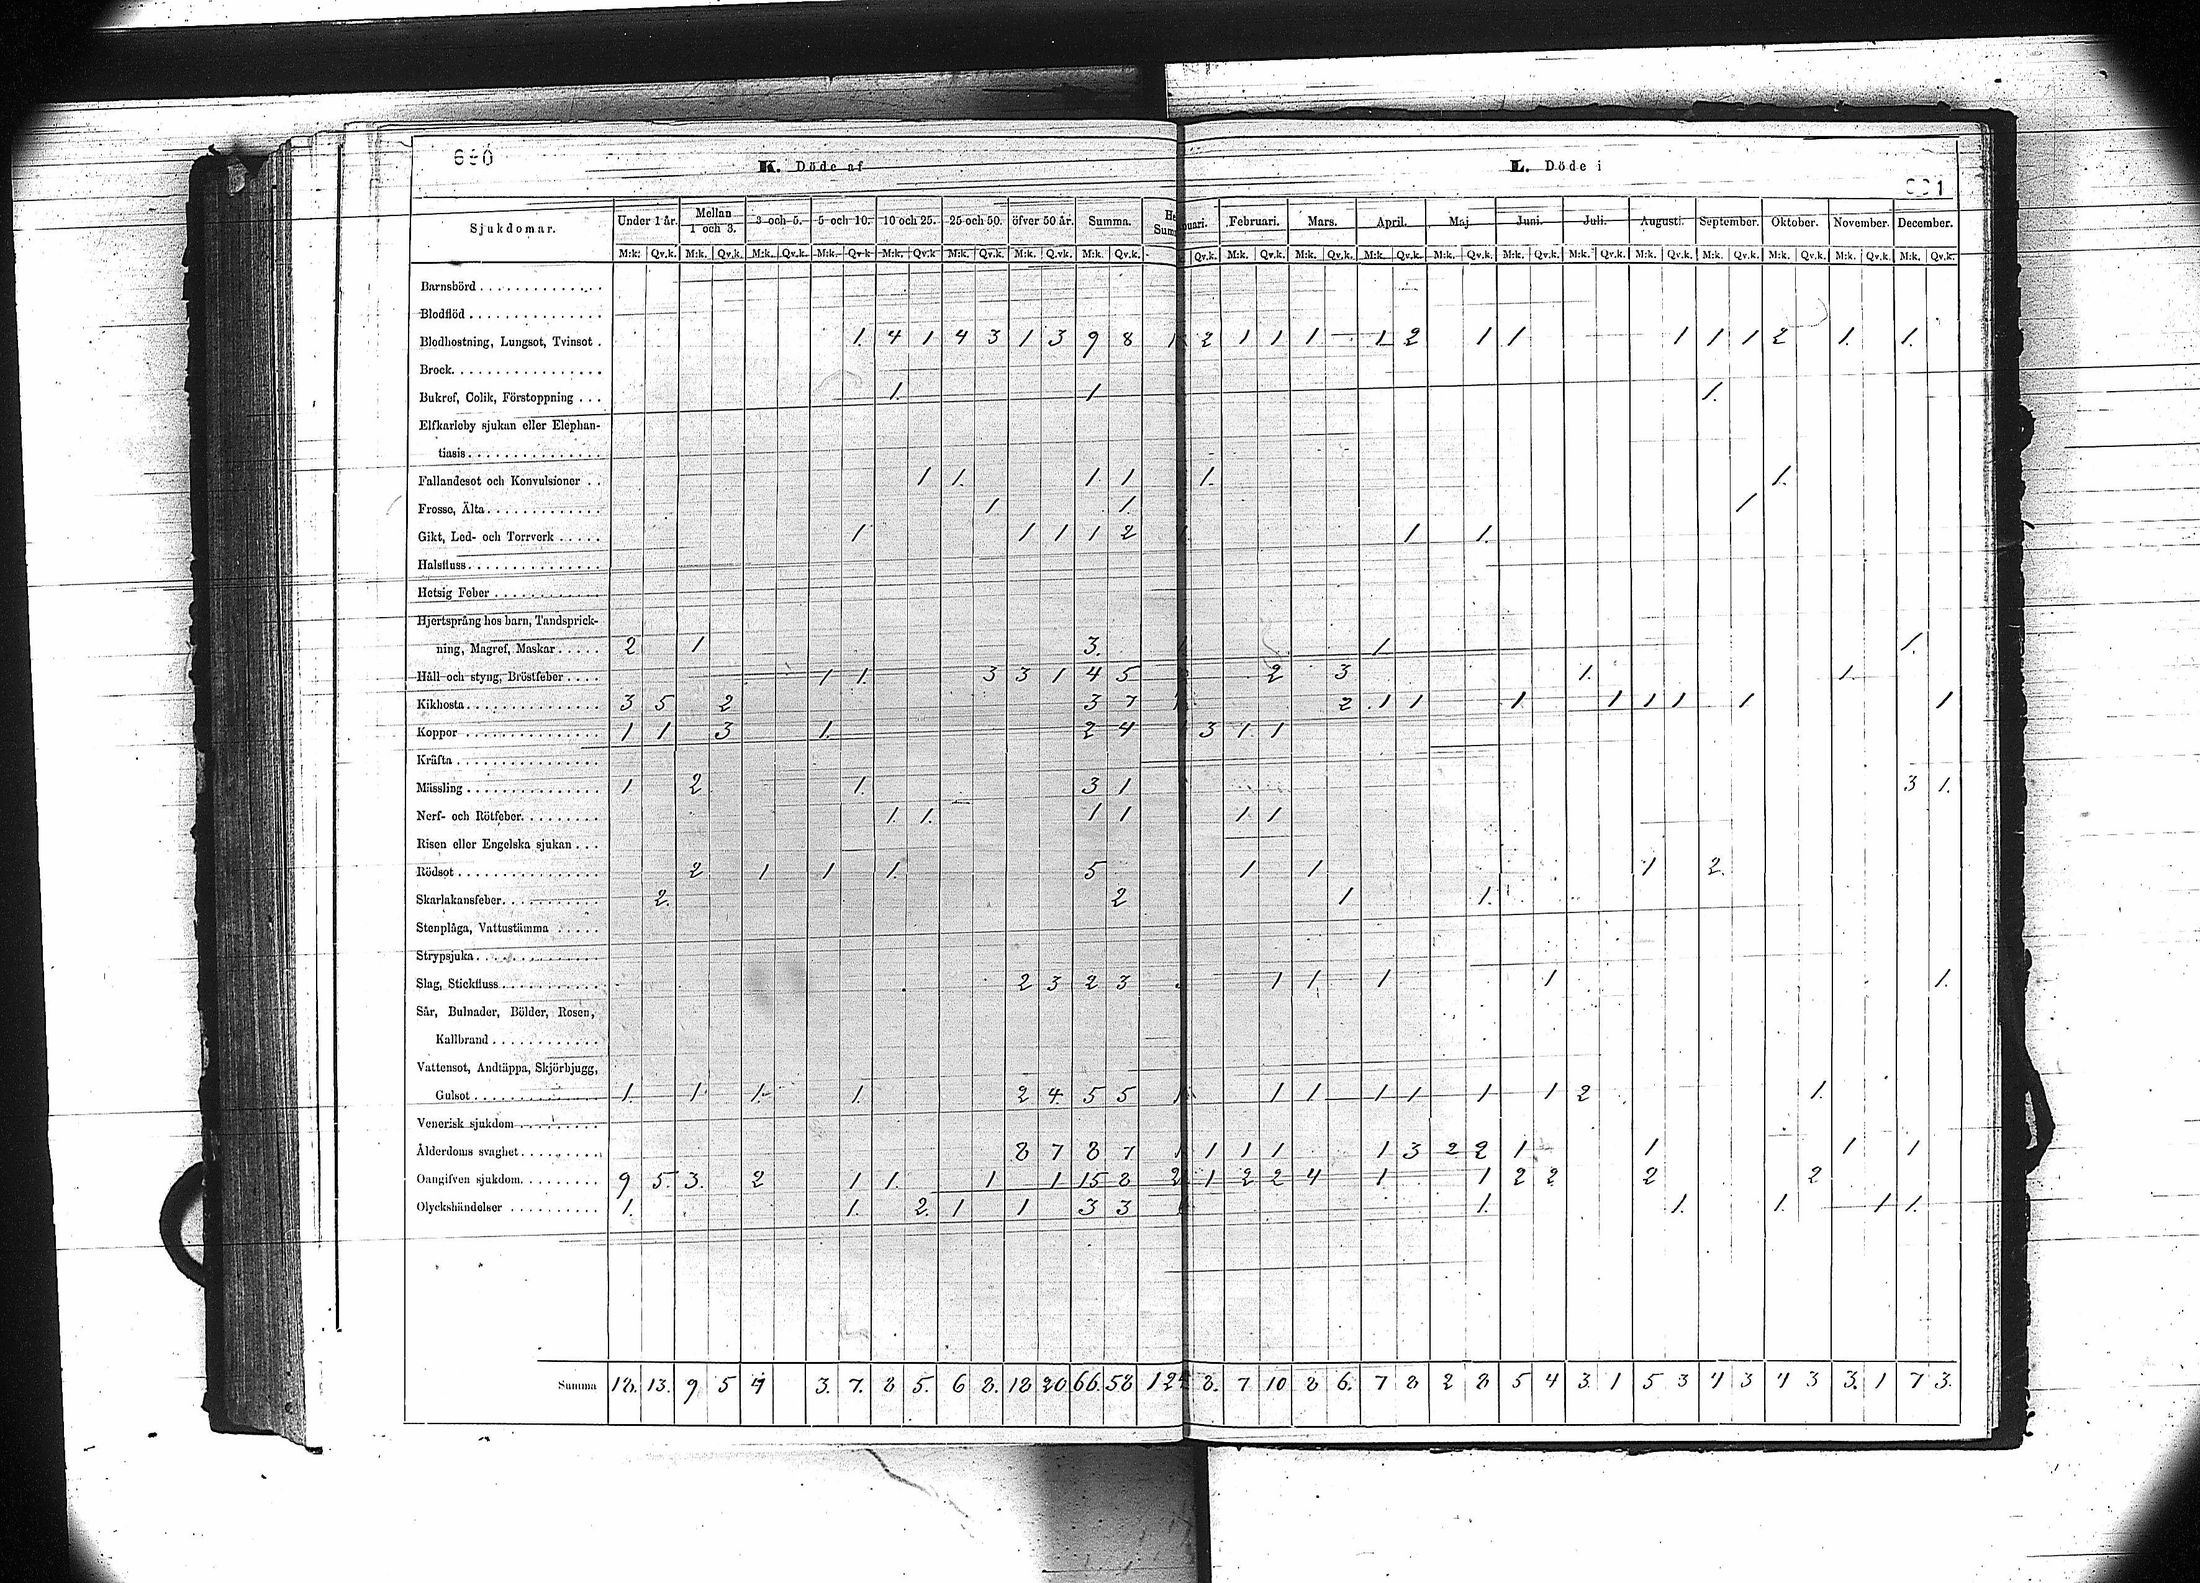 690
K. Döde af
L. Döde i
Sjukdomar. Under 1 år. Mellan 1 och 3. 3 och 5. 5 och 10. 10 och 25. 25 och 50. öfver 50 år. Summa. Februari. Mars. April. Maj. Juni. Juli. Augusti. September. Oktober. November. December.
M:k. Qv.k. M:k. Qv.k. M:k. Qv.k. M:k. Qv.k. M:k. Qv.k. M:k. Qv.k. M:k. Qv.k. M:k. Qv.k. Qv.k. M:k. Qv.k. M:k. Qv.k. M:k. Qv.k. M:k. Qv.k. M:k. Qv.k. M:k. Qv.k. M:k. Qv.k. M:k. Qv.k. M:k. Qv.k. M:k. Qv.k. M:k. Qv.k.
Barnsbörd
Blodflöd
Blodhostning, Lungsot, Tvinsot . 1. 4 1 4 3 1 3 9 8 2 1 1 1 1 2 1 1 1 1 1 2 1. 1.
Brock
Bukref, Colik, Förstoppning . . . 1. 1 1.
Elfkarleby sjukan eller Elephan-
tiasis
Fallandesot och Konvulsioner . . 1 1. 1. 1 1. 1.
Frosso, Älta 1 1. 1
Gikt, Led- och Torrverk 1 1 1 1 2 1 1.
Halsfluss
Hetsig Feber
Hjertsprång hos barn, Tandsprick-
ning, Magref, Maskar 2 1 3. 1 1.
Håll och styng, Bröstfeber 1 1. 3 3 1 4 5 2 3 1. 1.
Kikhosta 3 5 2 3 7 2 1 1 1 1 1 1 1 1
Koppor 1 1 3 1. 2 4 3 1. 1
Kräfta
Mässling 1 2 1. 3 1 3 1.
Nerf- och Rötfeber 1. 1. 1 1 1 1
Risen eller Engelska sjukan . . .
Rödsot 2 1 1 1. 5 1 1 1 2.
Skarlakansfeber 2. 2 1 1.
Stenplåga, Vattustämma
Strypsjuka
Slag, Stickfluss 2 3 2 3 1 1 1 1 1.
Sår, Bulnader, Bölder, Rosen,
Kallbrand
Vattensot, Andtäppa, Skjörbjugg,
Gulsot 1. 1 1. 1. 2 4. 5 5 1 1 1 1 1 1 2 1.
Venerisk sjukdom
Ålderdoms svaghet 8 7 8 7 1 1 1 1 1 3 2 2 1 1 1 1
Oangifven sjukdom 9 5. 3. 2 1 1. 1 1 15 8 2 1 2 2 4 1 1 2 2 2 2
Olyckshändelser 1. 1. 2. 1 1 3 3 1. 1. 1. 1 1.
Summa 18. 13. 9 5 4 3. 7. 8 5. 6 8. 18 20 66. 58 124 8. 7 10 8 6. 7 8 2 8 5 4 3. 1 5 3 4 3 4 3 3. 1 7 3.